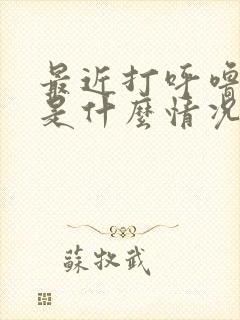 最近打呼噜
是什麼情况
蘇牧武